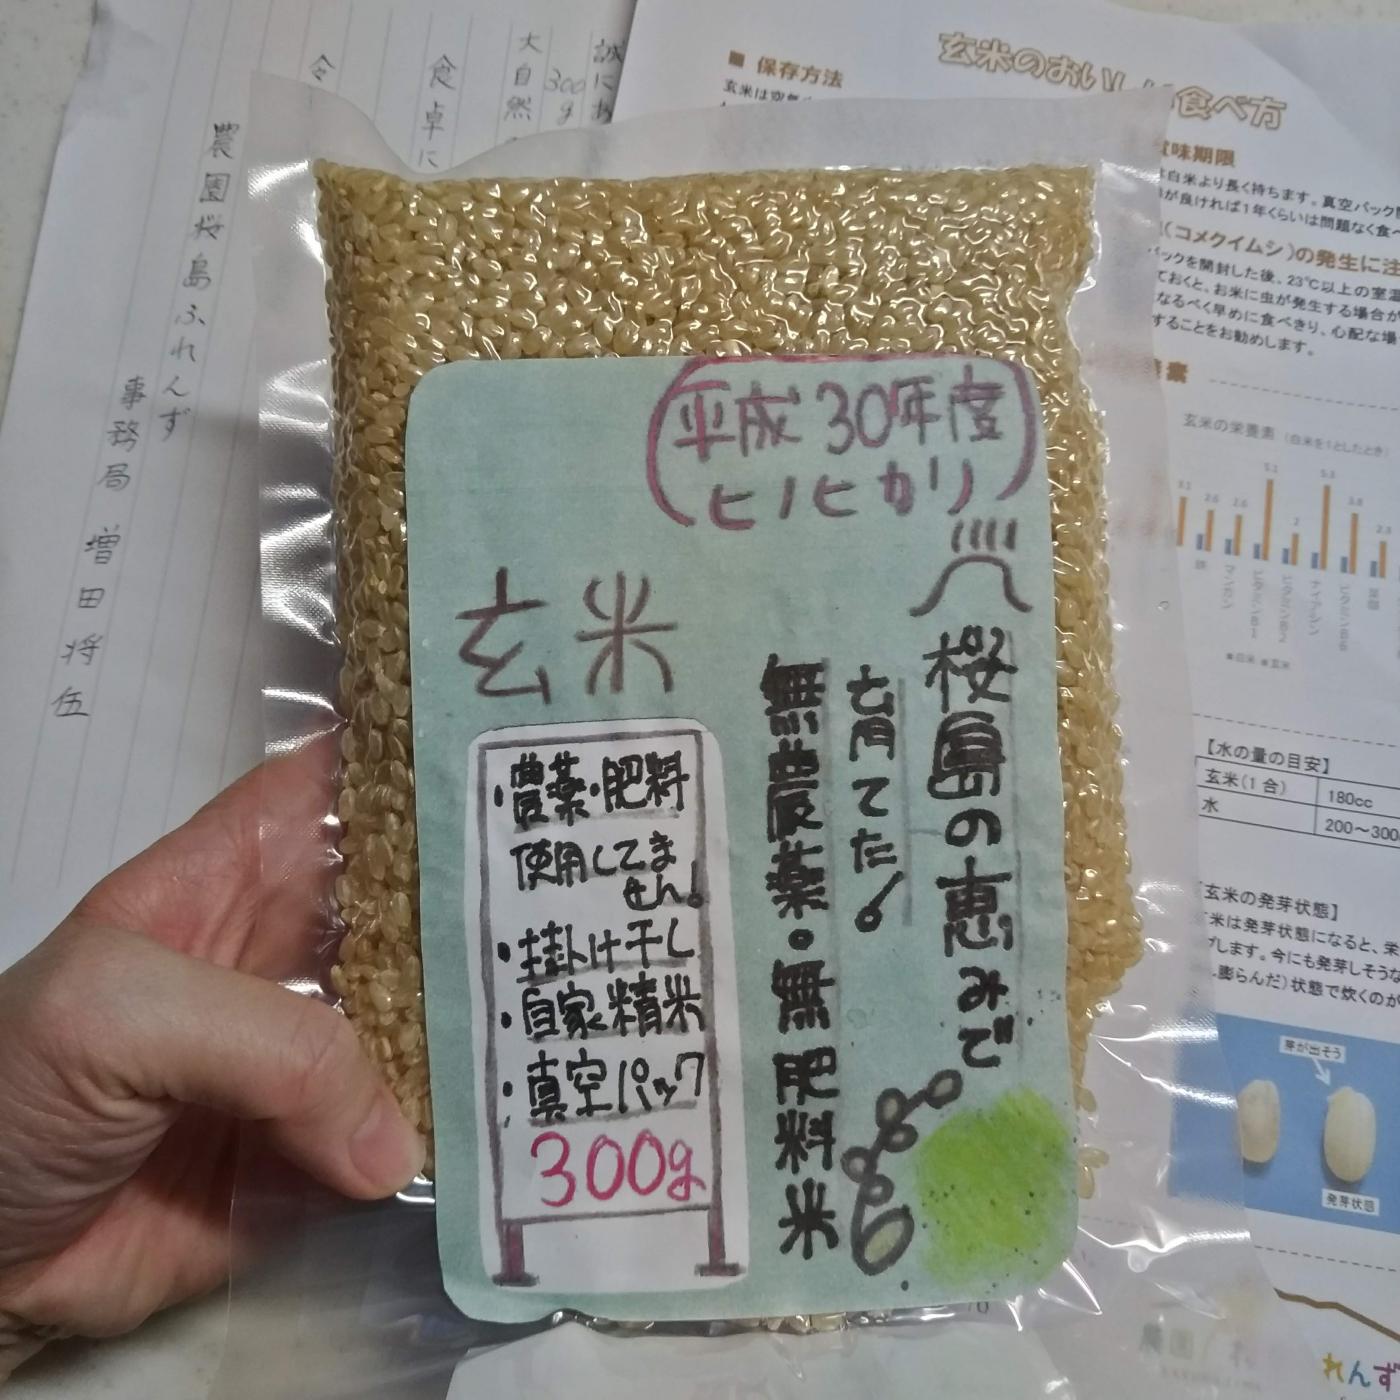 平成30年度
ヒノヒカリ
桜島の恵みで
育てた!
無農薬・無肥料米
玄米
・農薬・肥料
使用してま
せん!
・掛け干し
・自家精米
・真空パック
300g
誠にあ
300g
大自然
食卓に
令
農園桜島ふれんず
事務局 増田将伍
玄米のおいし
食べ方
■ 保存方法
玄米は空気
味期限
白米より長く持ちます。真空パック
が良ければ1年くらいは問題なく食べ
(コメクイムシ)の発生に注
パックを開封した後、23℃以上の室温
ておくと、お米に虫が発生する場合が
なるべく早めに食べきり、心配な場
することをお勧めします。
素
玄米の栄養素 (白米を1としたとき)
3.1
2.6
2.6
5.1
2
5.3
3.8
2.3
鉄
マンガン
ビタミンB1
ビタミンB2
ナイアシン
ビタミンB6
葉酸
■白米 ■玄米
【水の量の目安】
玄米(1合) 180cc
水 200〜300
玄米の発芽状態】
米は発芽状態になると、栄
げします。今にも発芽しそうな
膨らんだ)状態で炊くのが
芽が出そう
発芽状態
れんず